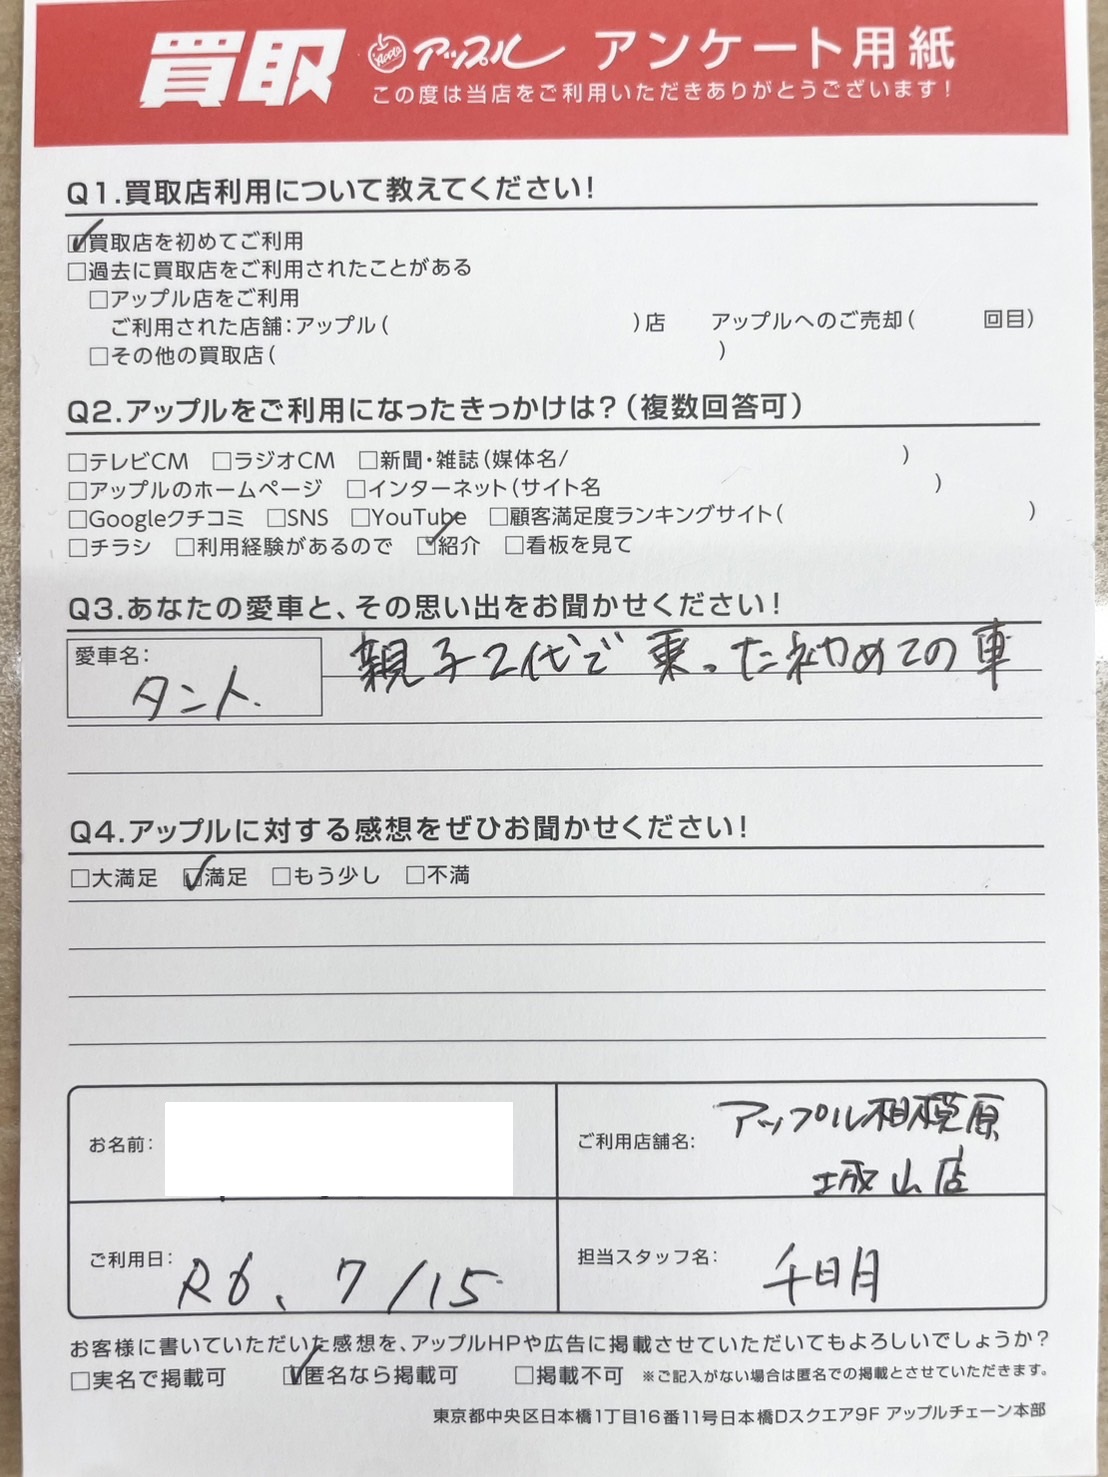 買取 Apple アップル アンケート用紙
この度は当店をご利用いただきありがとうございます！
Q1.買取店利用について教えてください！
☑買取店を初めてご利用
□過去に買取店をご利用されたことがある
□アップル店をご利用
ご利用された店舗：アップル（　　　）店　アップルへのご売却（　　回目）
□その他の買取店（　　　）
Q2.アップルをご利用になったきっかけは？（複数回答可）
□テレビCM　□ラジオCM　□新聞・雑誌（媒体名/　　　）
□アップルのホームページ　□インターネット（サイト名　　　）
□Googleクチコミ　□SNS　□YouTube　□顧客満足度ランキングサイト（　　　）
□チラシ　□利用経験があるので　☑紹介　□看板を見て
Q3.あなたの愛車と、その思い出をお聞かせください！
愛車名：タント
親子2代で乗った初めての車
Q4.アップルに対する感想をぜひお聞かせください！
□大満足　☑満足　□もう少し　□不満
お名前：
ご利用店舗名：アップル相模原
城山店
ご利用日：R6、7/15
担当スタッフ名：千日月
お客様に書いていただいた感想を、アップルHPや広告に掲載させていただいてもよろしいでしょうか？
□実名で掲載可　☑匿名なら掲載可　□掲載不可　※ご記入がない場合は匿名での掲載とさせていただきます。
東京都中央区日本橋1丁目16番11号日本橋Dスクエア9F アップルチェーン本部